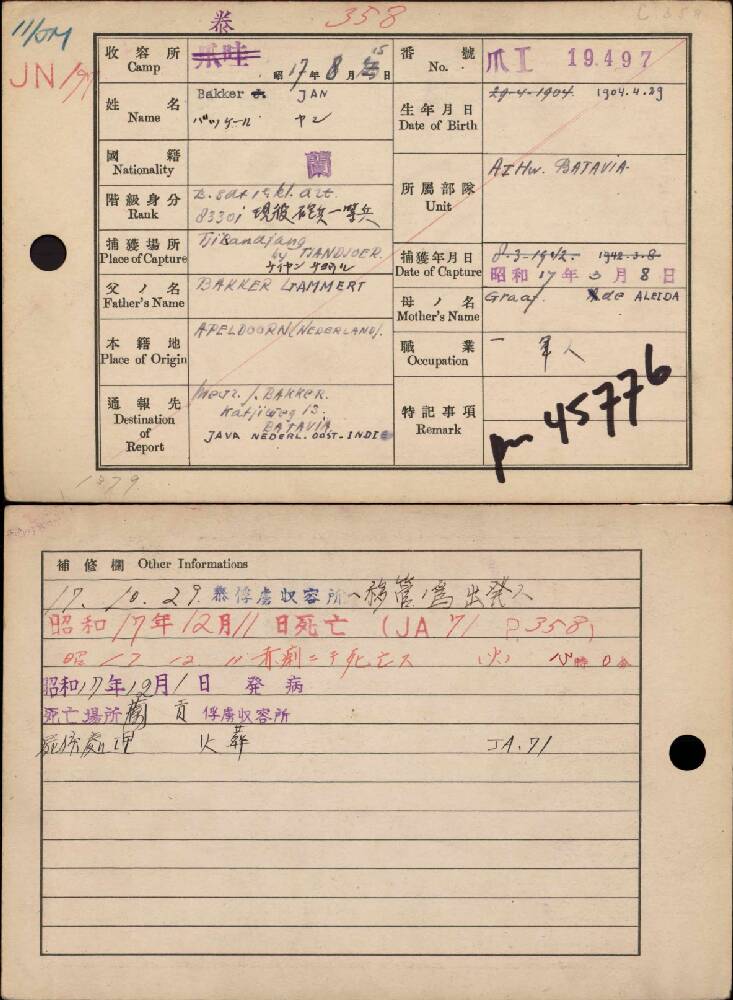 泰
358
C 358
11/5M
JN 197
收容所 Camp
爪哇
昭17年8月15日
番號 No.
爪I 19.497
姓名 Name
Bakker JAN
バッケール ヤン
生年月日 Date of Birth
29-4-1904. 1904.4.29
國籍 Nationality
蘭
所屬部隊 Unit
AIHw. BATAVIA.
階級身分 Rank
83301 現役砲兵一等兵
捕獲場所 Place of Capture
Tjikandjang
by TJANDJOER.
捕獲年月日 Date of Capture
8-3-1942. 1942-3-8
昭和17年3月8日
父ノ名 Father's Name
BAKKER LAMMERT
母ノ名 Mother's Name
Graaf de ALEIDA
本籍地 Place of Origin
APELDOORN (NEDERLAND).
職業 Occupation
軍人
通報先 Destination of Report
Mevr. J. BAKKER.
Katjiweg 13.
BATAVIA
JAVA NEDERL. OOST-INDIE
特記事項 Remark
pm 45776
1879
補修欄 Other Informations
17.10.29. 泰俘虜収容所ヘ移管ノ為出発ス
昭和17年12月11日死亡 (JA 71 P.358)
昭 17 12 11 赤痢ニテ死亡ス
昭和17年12月1日 発病
死亡場所 俘虜収容所
火葬 JA.71